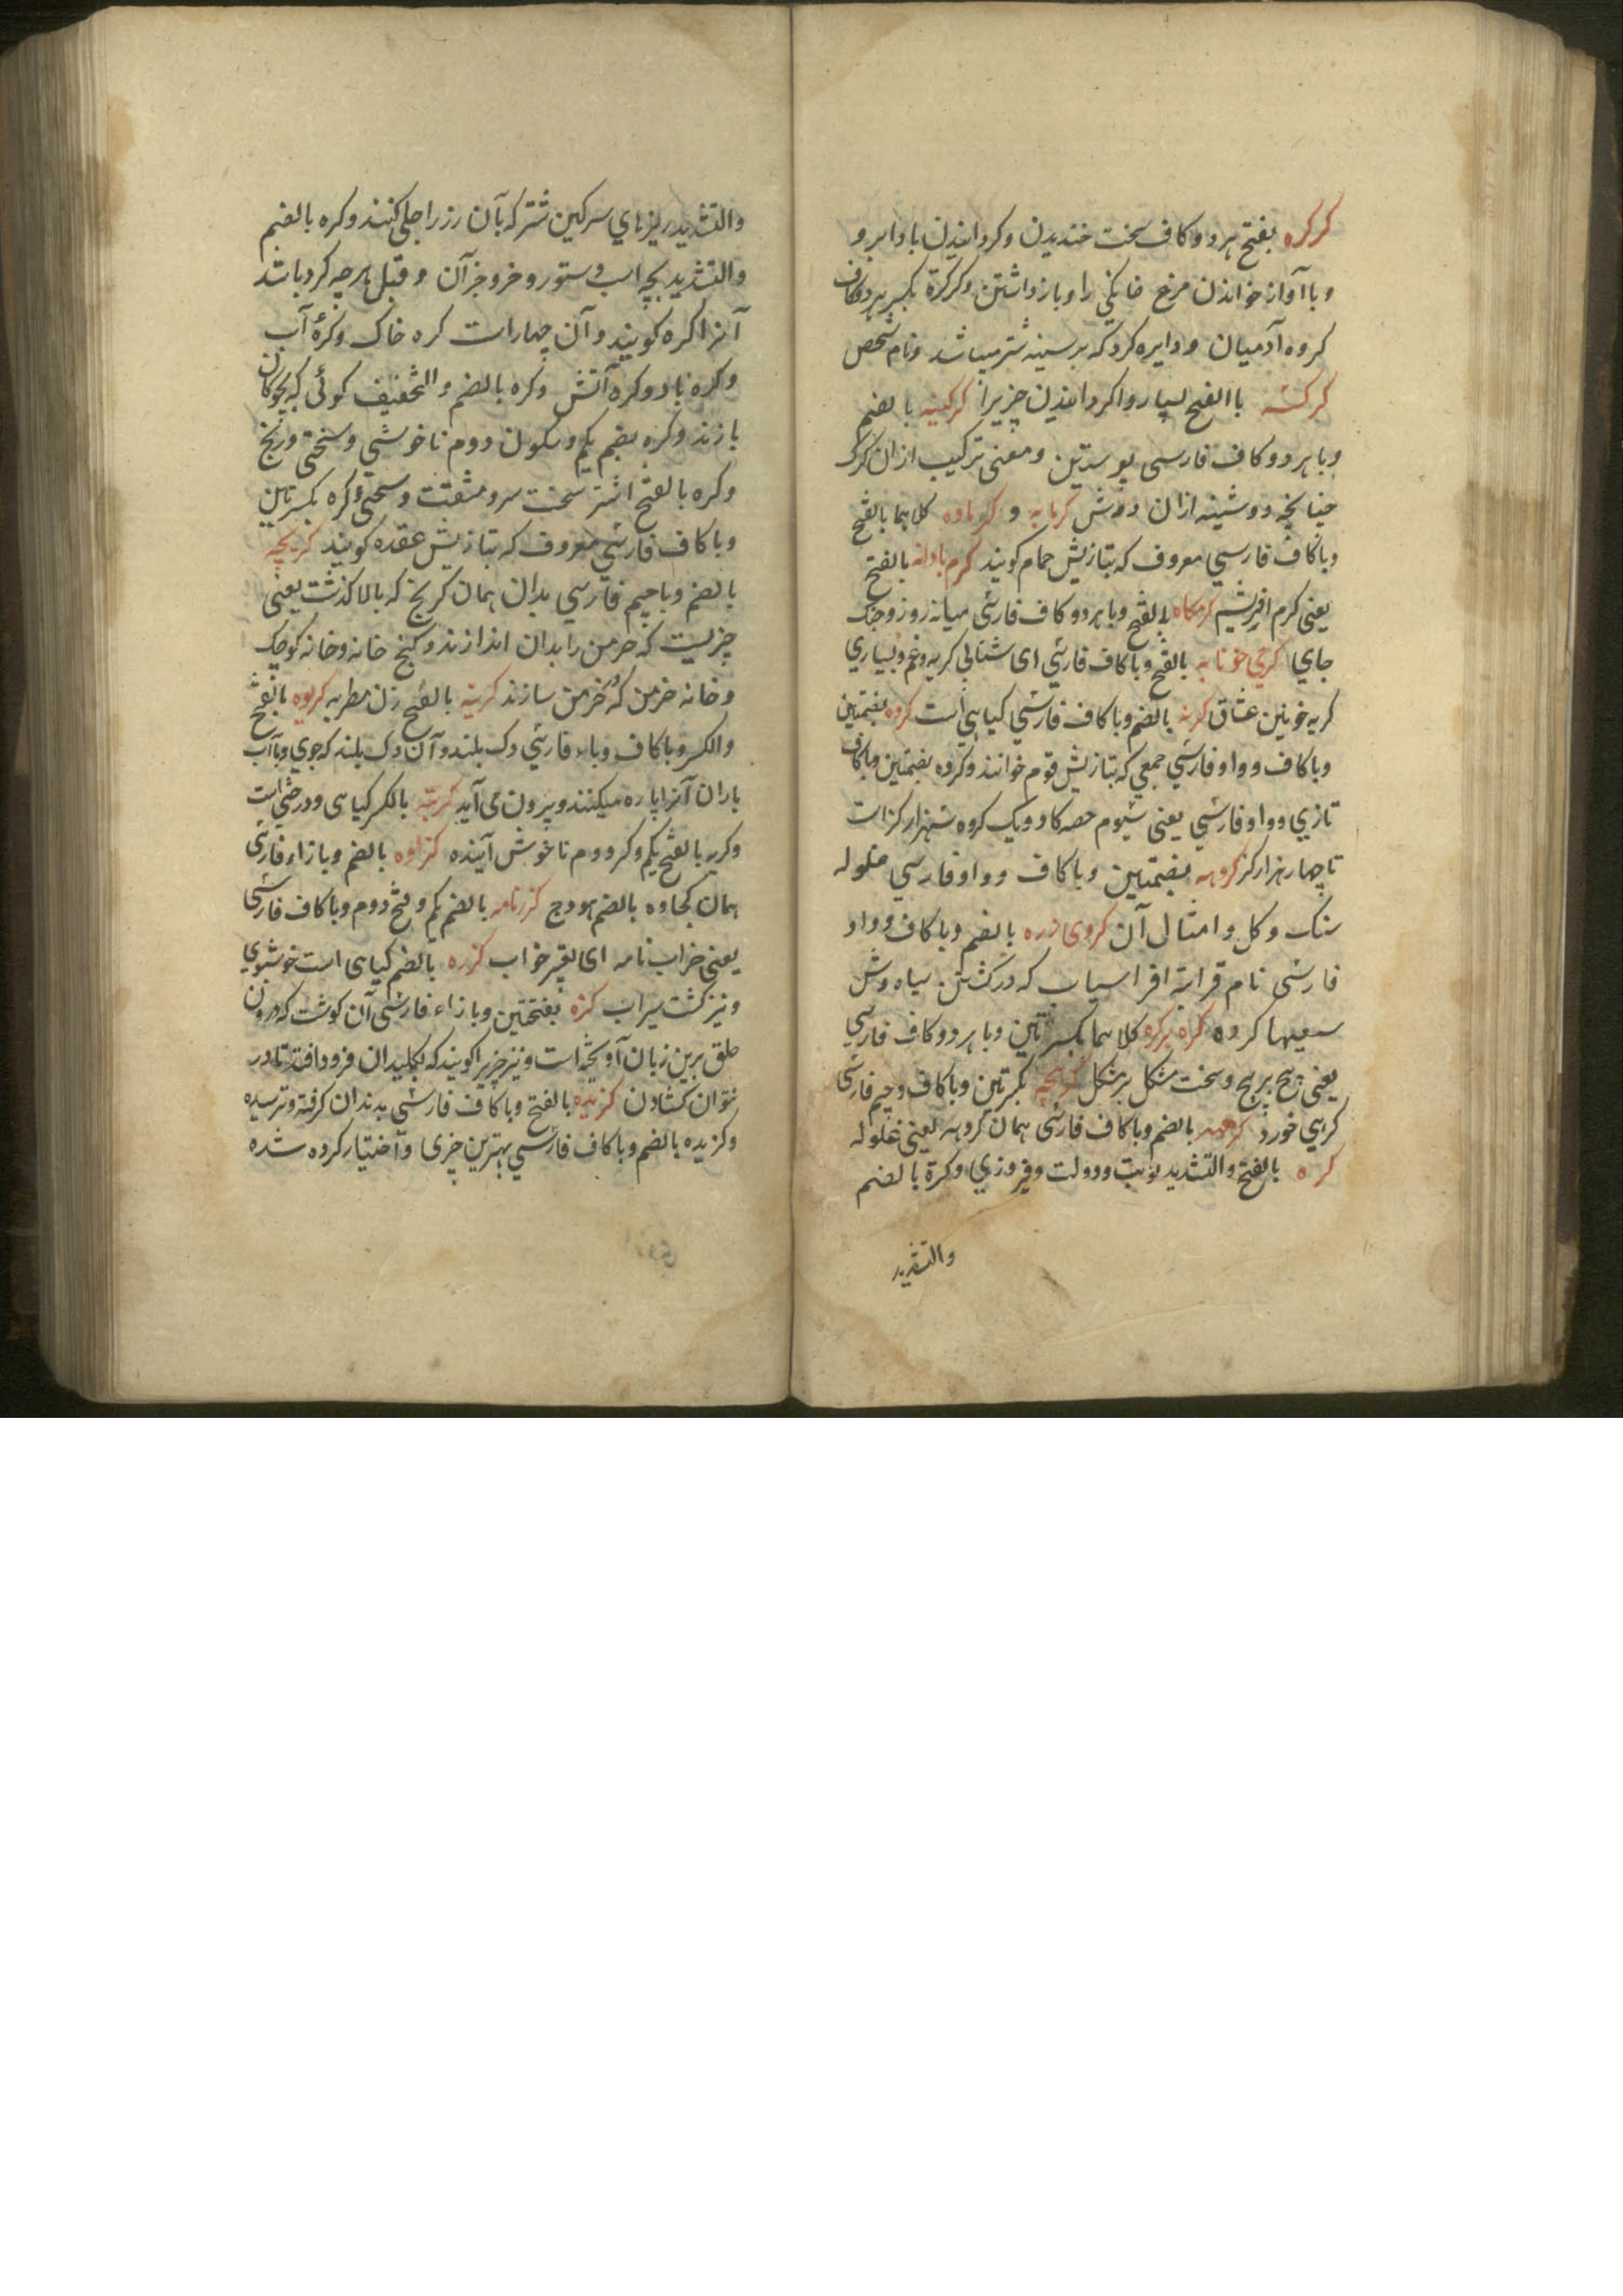 کرکره بفتح هر دو کاف سخت خندیدن و کردانیدن باد ابر و
و باآواز خواندن مرغ خانکی را و بازداشتن و کرکرة بکسر هر دو کاف
کروه آدمیان و دایره کرد که بر سینه شتر میباشد و نام شخص
کرکشه باالفتح بسیار واکردانیدن چیزیرا کرکینه بالضم
و باهر دو کاف فارسی پوستین و معنی ترکیب از ان کرک
چنانچه دوشینه ازان دوش کرمابه و کرماوه کلاهما بالفتح
و باکاف فارسی معروف که بتازیش حمام کویند کرم بادانه بالفتح
یعنی کرم افریشم کرمکاه بالفتح و باهر دو کاف فارسی میانه روز و جنک
جای کرمی خونابه بالفتح و باکاف فارسی ای شتابی کریه و غم و بسیاری
کریه خونین عشاق کرنه بالضم و باکاف فارسی کیاهی است کروه بضمتین
و باکاف و واو فارسی جمعی که بتازیش قوم خوانند و کروه بضمتین و باکاف
تازی و واو فارسی یعنی سیوم حصه کاو ویک کروه سه هزار کز است
تا چهار هزار کز کروهه بضمتین و باکاف و واو فارسی غلوله
سنک و کل و امثالی آن کروی زره بالضم و باکاف و واو
فارسی نام قرابة افراسیاب که در کشتن سیاه وش
سعیها کرده کره بر کره کلاهما بکسرتین و باهر دو کاف فارسی
یعنی پیچ بر پیچ و سخت مشکل بر مشکل کرهچه بکسرتین و باکاف و جیم فارسی
کرهی خورد کرهه بالضم و باکاف فارسی همان کروهه یعنی غلوله
کره بالفتح و التشدید نوبت و دولت و فیروزی و کرة بالضم
والتشدید
والتشدید ریزهای سرکین شتر که بآن زر را جلی کنند و کره بالضم
والتشدید بچه اسب و ستور و خر و جز آن و قبل هر چه کرد باشد
آنرا کره کویند و آن چهار است کره خاک و کرهٔ آب
و کره باد و کره آتش و کره بالضم و التخفیف کوئی که بچوکان
بازند و کره بضم یکم و سکون دوم ناخوشی و سختی و رنج
و کره بالفتح اشتر سخت سر و مشقت و سختی و کره بکسرتین
و باکاف فارسی معروف که بتازیش عقده کویند کریچه
بالضم و باجیم فارسی بدان همان کریج که بالا کذشت یعنی
چزیست که خرمن را بدان اندازند و کنج خانه و خانه کوچک
و خانه خرمن که در خرمن سازند کرینه بالفتح زن مطربه کریوه بالفتح
والکسر و باکاف و یاء فارسی دک بلند و آن دک بلند که جوی و یا آب
باران آنرا پاره میکنند و بیرون می آید کریه بالکسر کیاهی و درختی است
و کریه بالفتح یکم و کسر دوم ناخوش آینده کزاوه بالضم و بازاء فارسی
همان کجاوه بالضم هودج کزرنامه بالضم یکم و فتح دوم و باکاف فارسی
یعنی خواب نامه ای تعبیر خواب کزره بالضم کیاهی است خوشبوی
و نیز کشت سیراب کزه بفتحتین و بازاء فارسی آن کوشت که درون
حلق برین زبان آویخته است و نیز چیزیرا کویند که بکلیدان فرود افتد تا در
نتوان کشادن کزیده بالفتح و باکاف فارسی بدندان کرفته و ترسیده
و کزیده بالضم و باکاف فارسی بهترین چیزی و اختیار کرده شده